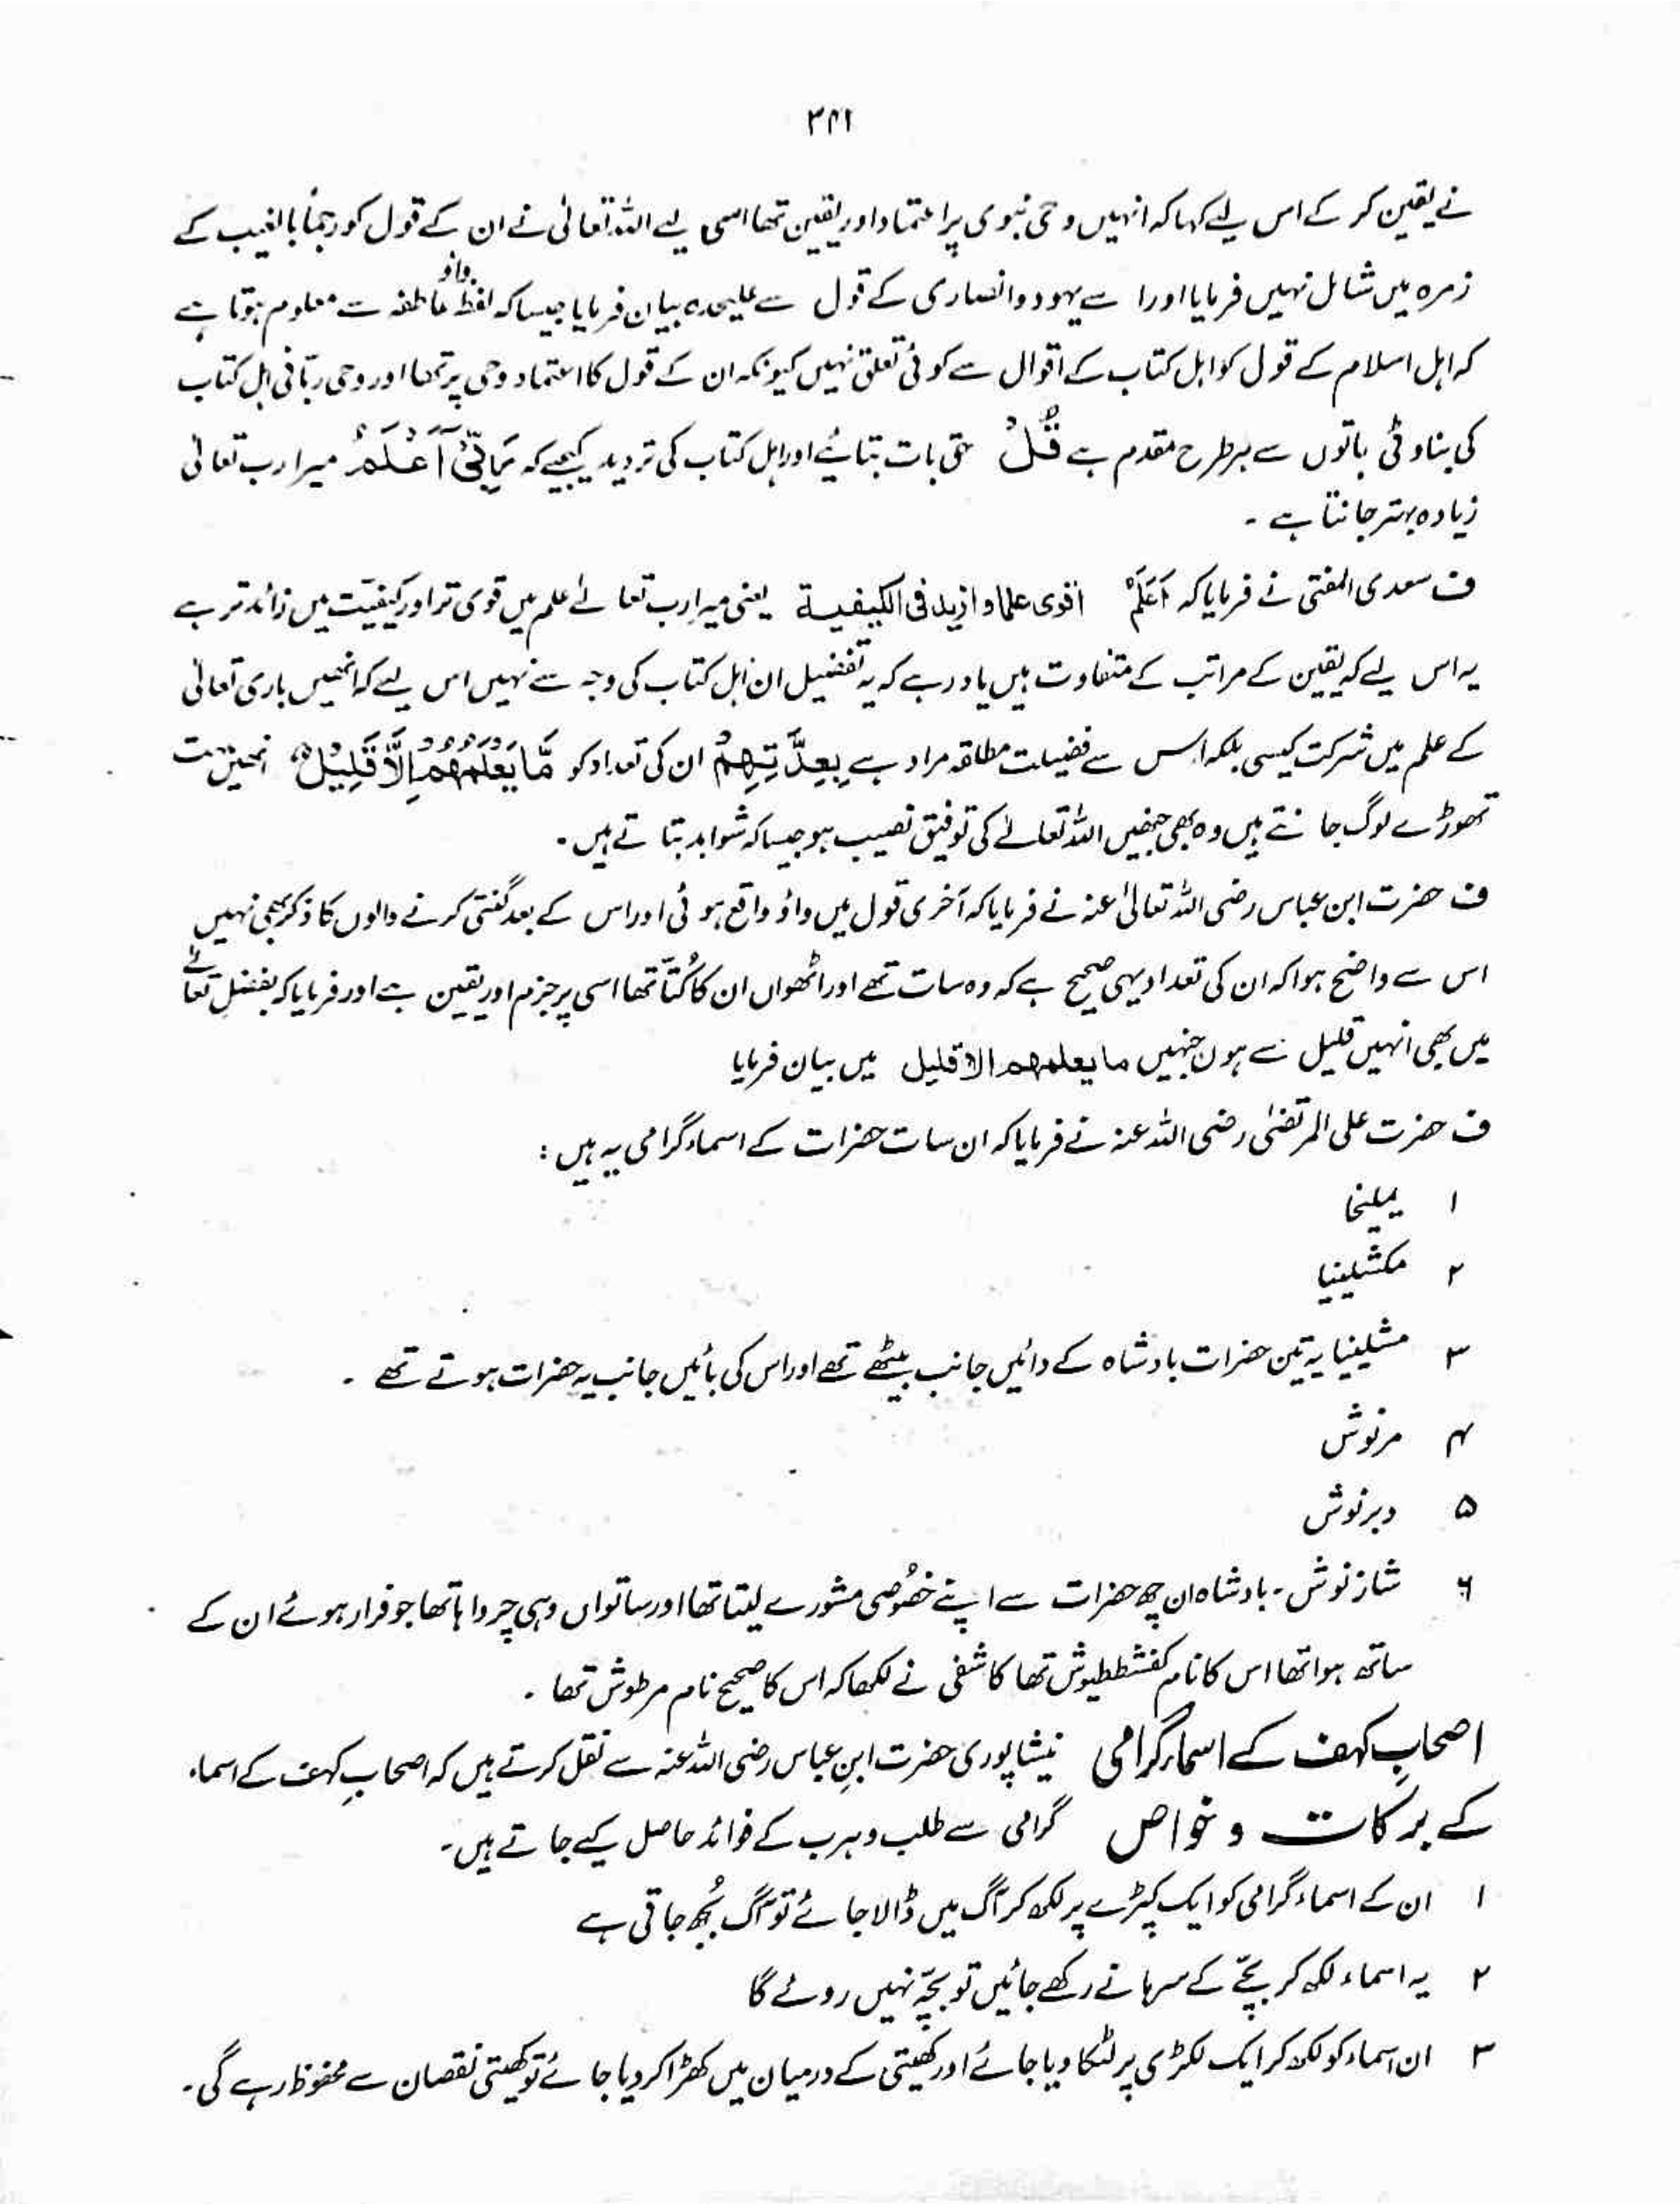 ۳۴۱
نے یقین کر کے اس لیے کہا کہ انہیں وحی نبوی پر اعتماد اور یقین تھا اسی لیے اللہ تعالیٰ نے ان کے قول کو رجماً بالغیب کے
زمرہ میں شامل نہیں فرمایا اور اسے یہود و انصاری کے قول سے علیحدہ بیان فرمایا جیسا کہ لفظ واؤ عاطفہ سے معلوم ہوتا ہے
کہ اہل اسلام کے قول کو اہل کتاب کے اقوال سے کوئی تعلق نہیں کیونکہ ان کے قول کا اعتماد وحی پر تھا اور وحی ربّانی اہل کتاب
کی بناوٹی باتوں سے ہر طرح مقدم ہے قُلْ حق بات بتائیے اور اہل کتاب کی تردید کیجیے کہ رَبِّیْٓ اَعْلَمُ میرا رب تعالیٰ
زیادہ بہتر جانتا ہے ۔
ف سعدی المفتی نے فرمایا کہ اَعْلَمُ اقوی علما و ازید فی الکیفیۃ یعنی میرا رب تعالےٰ علم میں قوی تر اور کیفیّت میں زائد تر ہے
یہ اس لیے کہ یقین کے مراتب کے متفاوت ہیں یاد رہے کہ یہ تفضیل ان اہل کتاب کی وجہ سے نہیں اس لیے کہ انھیں باری تعالیٰ
کے علم میں شرکت کیسی بلکہ اس سے فضیلت مطلقہ مراد ہے بِعِدَّتِهِمْ ان کی تعداد کو مَّا یَعْلَمُهُمْ اِلَّا قَلِیْلٌ انھیں بہت
تھوڑے لوگ جانتے ہیں وہ بھی جنھیں اللہ تعالےٰ کی توفیق نصیب ہو جیسا کہ شواہد بتاتے ہیں ۔
ف حضرت ابن عباس رضی اللہ تعالیٰ عنہ نے فرمایا کہ آخری قول میں واؤ واقع ہوئی اور اس کے بعد گنتی کرنے والوں کا ذکر بھی نہیں
اس سے واضح ہوا کہ ان کی تعداد یہی صحیح ہے کہ وہ سات تھے اور اٹھواں ان کا کُتّا تھا اسی پر جزم اور یقین ہے اور فرمایا کہ بفضلِ تعالےٰ
میں بھی انہیں قلیل سے ہوں جنہیں ما یعلمهم الا قلیل میں بیان فرمایا
ف حضرت علی المرتضیٰ رضی اللہ عنہ نے فرمایا کہ ان سات حضرات کے اسماء گرامی یہ ہیں :
۱ یملیخا
۲ مکشلینیا
۳ مشلینیا یہ تین حضرات بادشاہ کے دائیں جانب بیٹھے تھے اور اس کی بائیں جانب یہ حضرات ہوتے تھے ۔
۴ مرنوش
۵ دبرنوش
۶ شازنوش ۔ بادشاہ ان چھ حضرات سے اپنے خصُوصی مشورے لیتا تھا اور ساتواں وہی چرواہا تھا جو فرار ہوئے ان کے
ساتھ ہوا تھا اس کا نام کفشططیوش تھا کاشفی نے لکھا کہ اس کا صحیح نام مرطوش تھا ۔
اصحابِ کہف کے اسماء گرامی نیشاپوری حضرت ابنِ عباس رضی اللہ عنہ سے نقل کرتے ہیں کہ اصحابِ کہف کے اسماء
کے برکات و خواص گرامی سے طلب و ہرب کے فوائد حاصل کیے جاتے ہیں۔
۱ ان کے اسماء گرامی کو ایک کپڑے پر لکھ کر آگ میں ڈالا جائے تو آگ بُجھ جاتی ہے
۲ یہ اسماء لکھ کر بچّے کے سرہانے رکھے جائیں تو بچّہ نہیں روئے گا
۳ ان اسماء کو لکھ کر ایک لکڑی پر لٹکا دیا جائے اور کھیتی کے درمیان میں کھڑا کر دیا جائے تو کھیتی نقصان سے محفوظ رہے گی۔